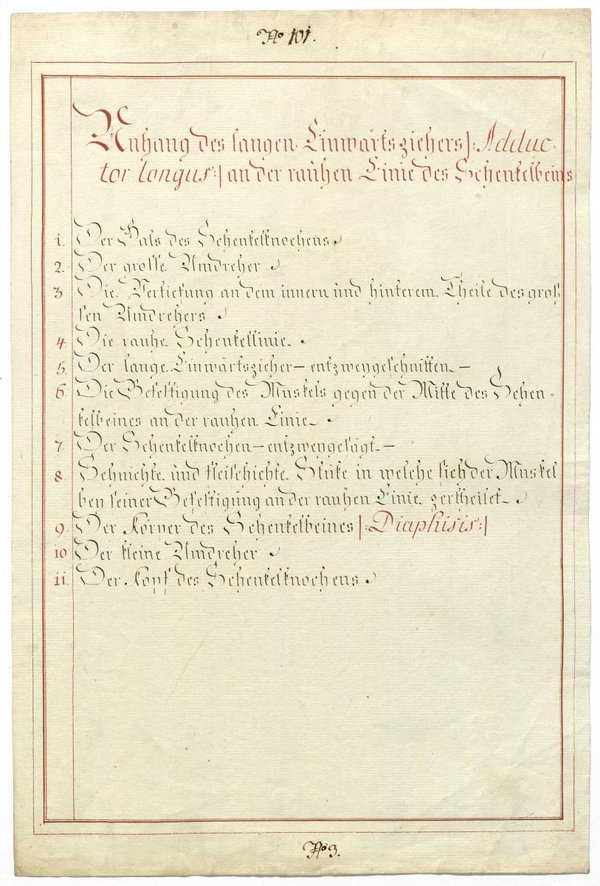 No 101.
Anhang des langen Einwärtsziehers |: Adduc-
tor longus :| an der rauhen Linie des Schenkelbeins
1. Der Hals des Schenkelknochens.
2. Der grosse Umdreher
3 Die Vertiefung an dem innern und hinterem Theile des gros-
sen Umdrehers
4. Die rauhe Schenkellinie.
5. Der lange Einwärtszieher – entzweygeschnitten –
6. Die Befestigung des Muskels gegen der Mitte des Schen-
kelbeines an der rauhen Linie.
7. Der Schenkelknochen – entzweygesägt –
8. Sehnichte und fleischichte Stüke in welche sich der Muskel
bey seiner Befestigung an der rauhen Linie zertheilet
9. Der Körper des Schenkelbeines |: Diaphisis :|
10 Der kleine Umdreher
11. Der Kopf des Schenkelknochens
No 3.